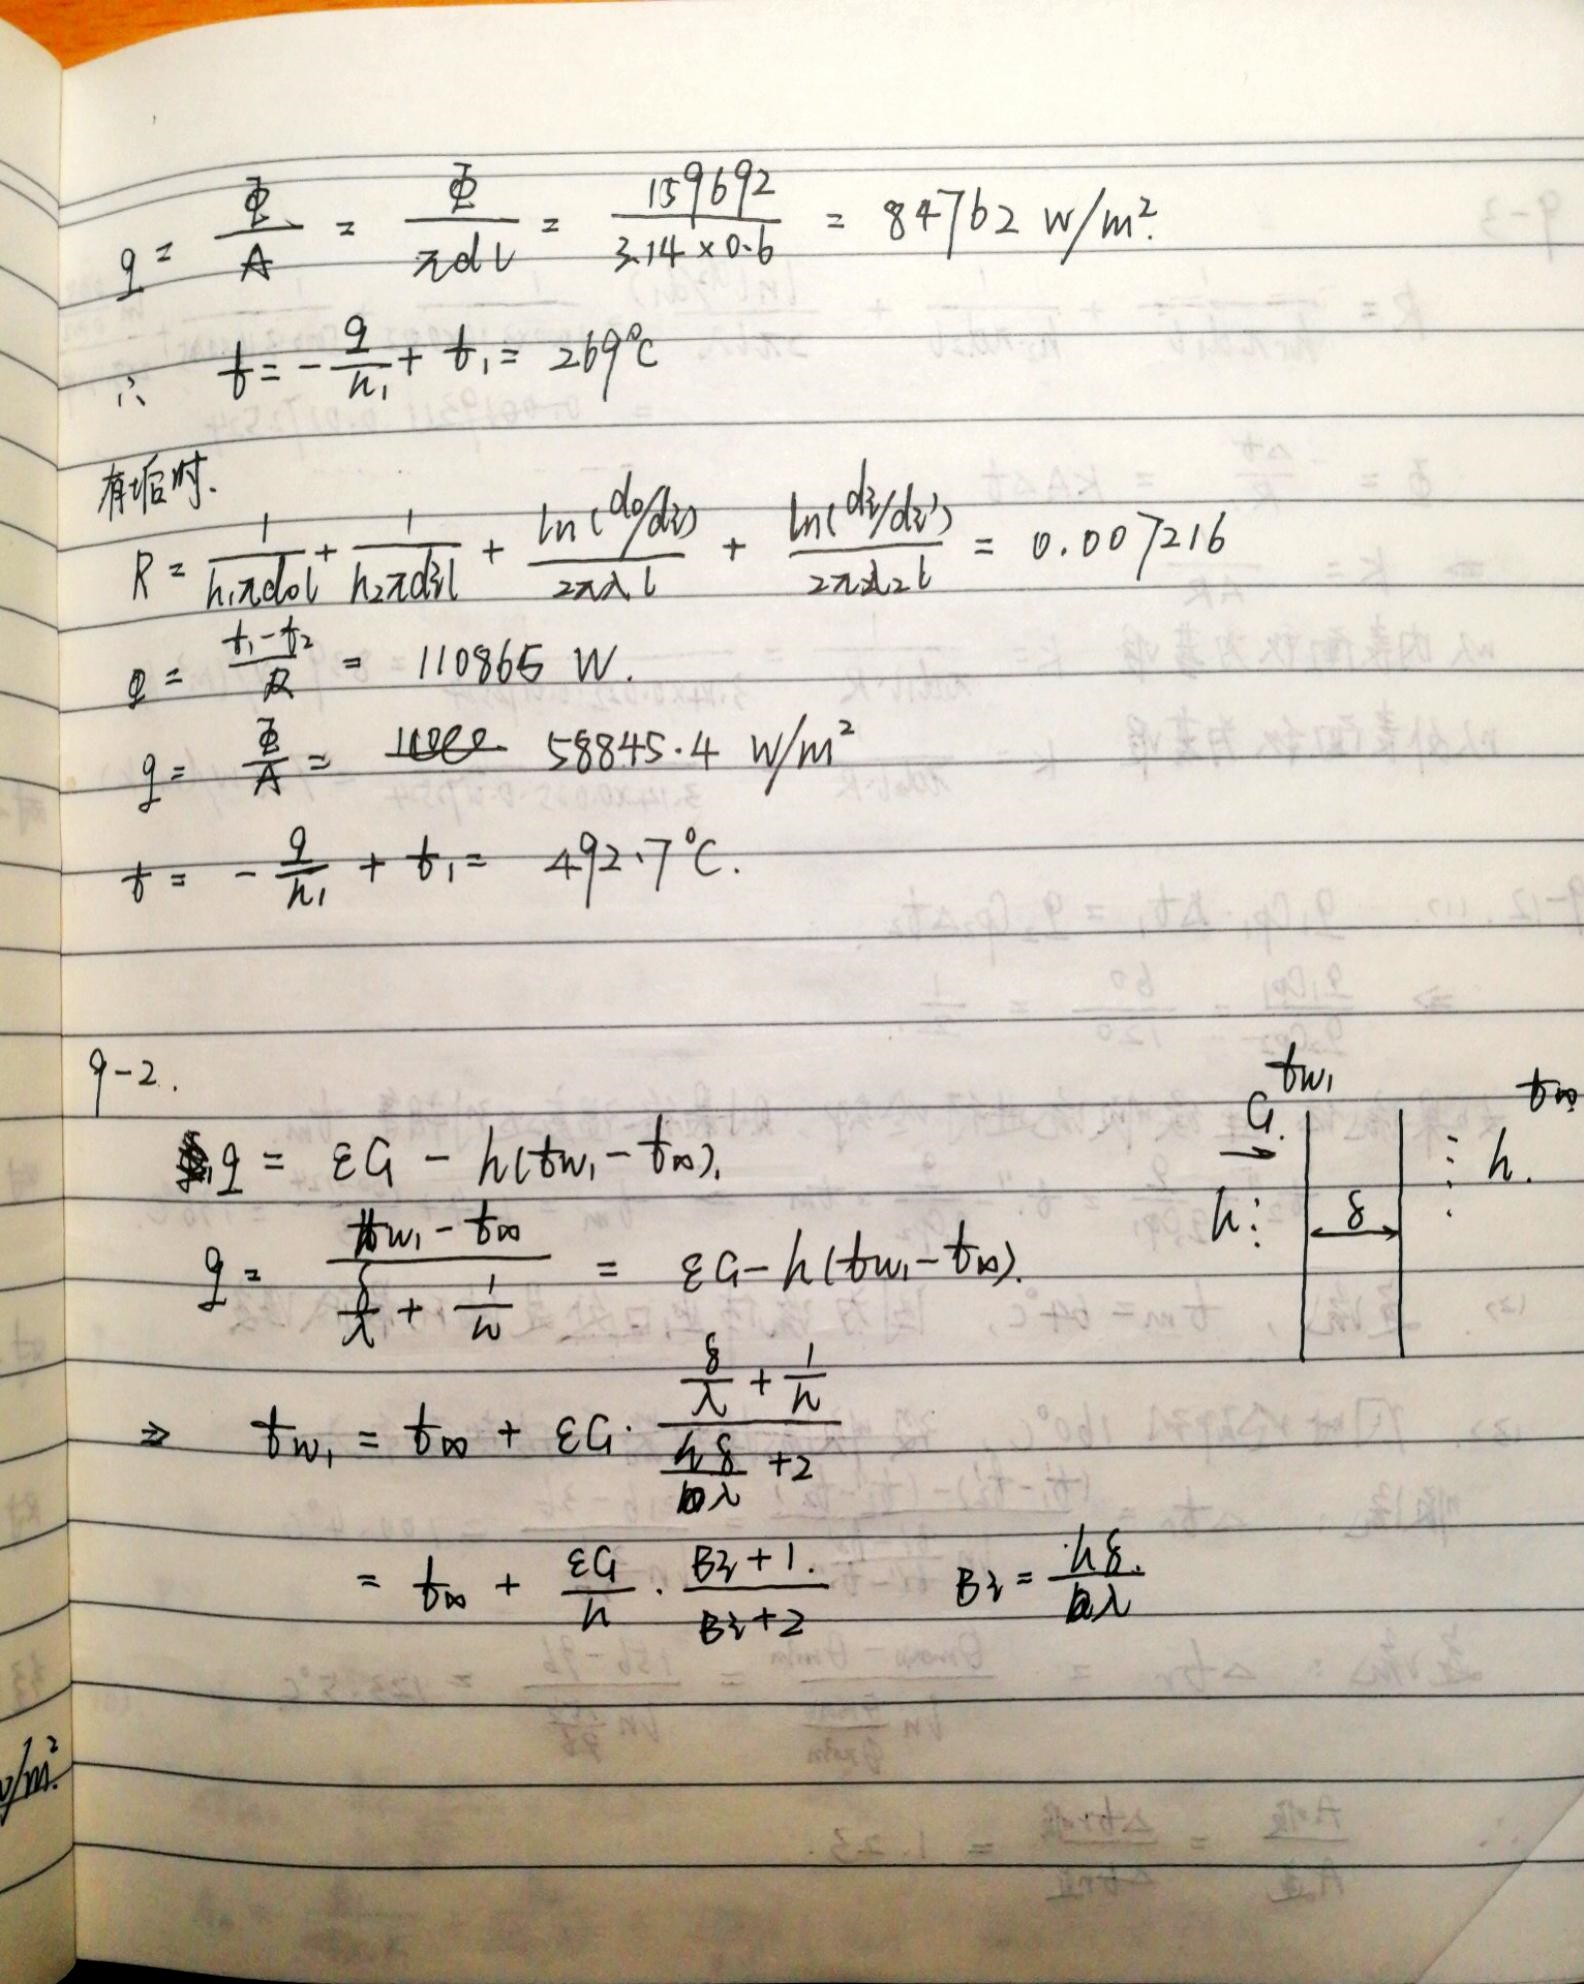 q = Φ/A = Φ/πdl = 159692/3.14×0.6 = 84762 W/m².
∴ t = -q/h₁ + t₁ = 269℃
有垢时.
R = 1/h₁πd₀l + 1/h₂πdil + ln(d₀/di)/2πλl + ln(di/di')/2πλ₂l = 0.007216
Φ = t₁-t₂/R = 110865 W.
q = Φ/A = 58845.4 W/m²
t = -q/h₁ + t₁ = 492.7℃.
9-2.
q = εG - h(tw₁-t∞).
q = tw₁-t∞ / (δ/λ + 1/h) = εG-h(tw₁-t∞).
⇒ tw₁ = t∞ + εG· (δ/λ + 1/h) / (hδ/λ +2)
= t∞ + εG/h · Bi+1./Bi+2 Bi = hδ./λ
tw₁
t∞
G.
→
h⋮
δ
⋮ h.
w/m².